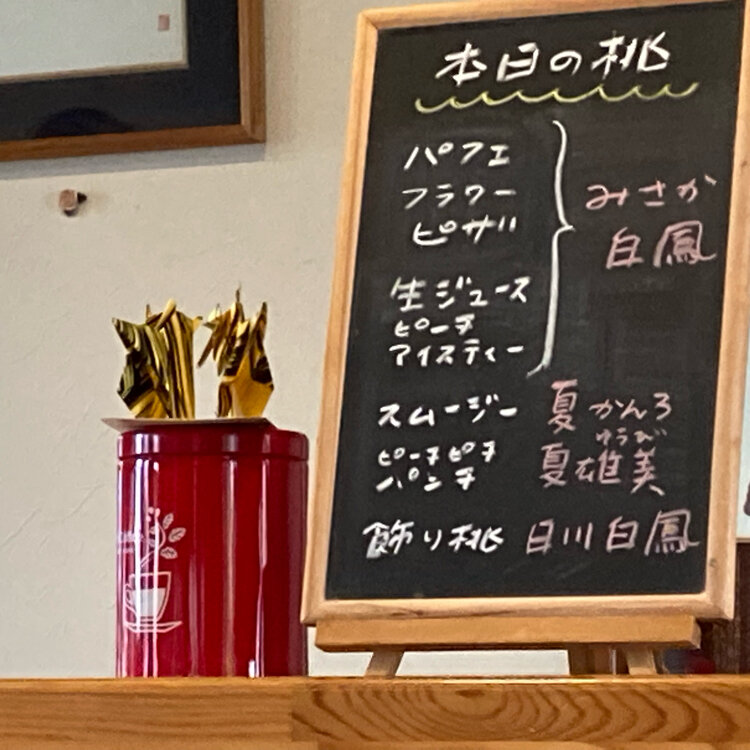 本日の桃
パフェ
フラワー
ピザ
みさか
白鳳
生ジュース
ピーチ
アイスティー
スムージー 夏かんろ
ピーチピチ
パンチ
ゆうび
夏雄美
飾り桃 日川白鳳